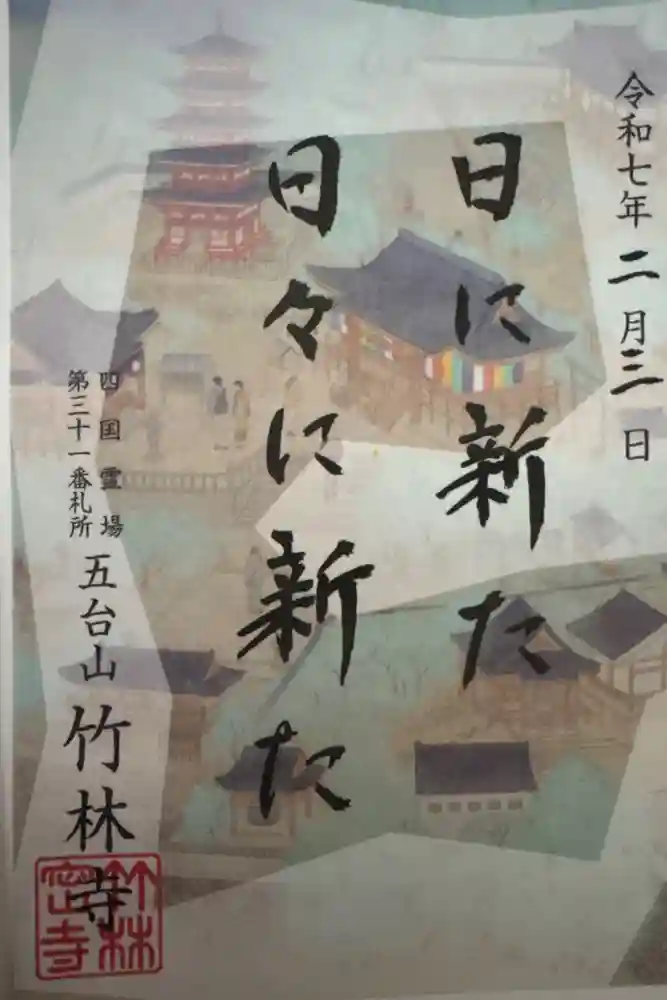 令和七年二月三日
日に新た
日々に新た
四国霊場
第三十一番札所
五台山 竹林寺
竹林
密寺